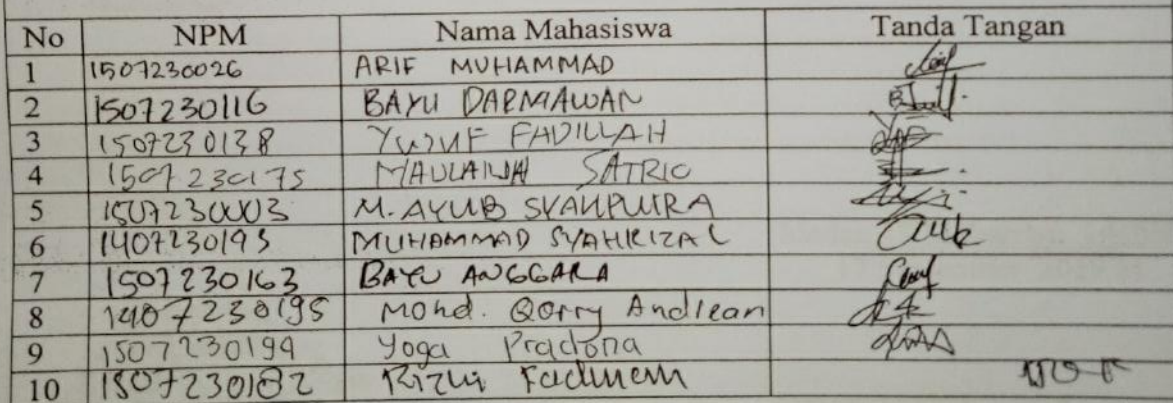 No NPM Nama Mahasiswa Tanda Tangan
1 1507230026 ARIF MUHAMMAD
2 1507230116 BAYU DARMAWAN
3 1507230138 YUSUF FADILLAH
4 1507230175 MAULANA SATRIO
5 1507230003 M. AYUB SYAHPUTRA
6 1407230193 MUHAMMAD SYAHRIZAL
7 1507230163 BAYU ANGGARA
8 1407230195 Mohd. Qorry Andrean
9 1507230199 Yoga Pradona
10 1507230182 Rizki